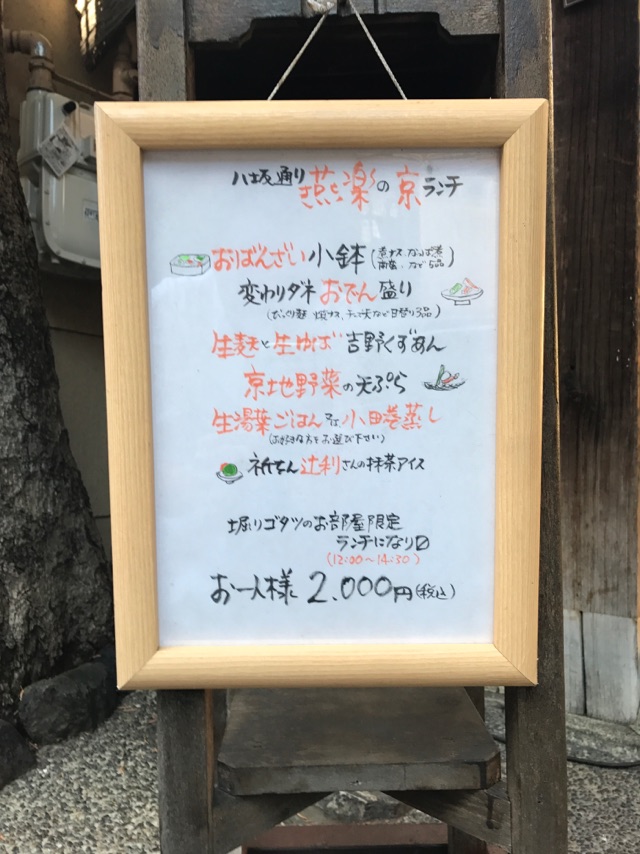 八坂通り 燕楽の京ランチ
えんらく
おばんざい小鉢(煮ナス、なっぱ煮
南蛮、など5品)
変わりダネおでん盛り
焼ナス、チーズ天など日替り3品)
生麩と生ゆば吉野くずあん
京地野菜の天ぷら
生湯葉ごはん又は小田巻蒸し
(お好きな方をお選び下さい)
祇をん辻利さんの抹茶アイス
堀りゴタツのお部屋限定
ランチになり〼
(12:00〜14:30)
お一人様 2.000円(税込)